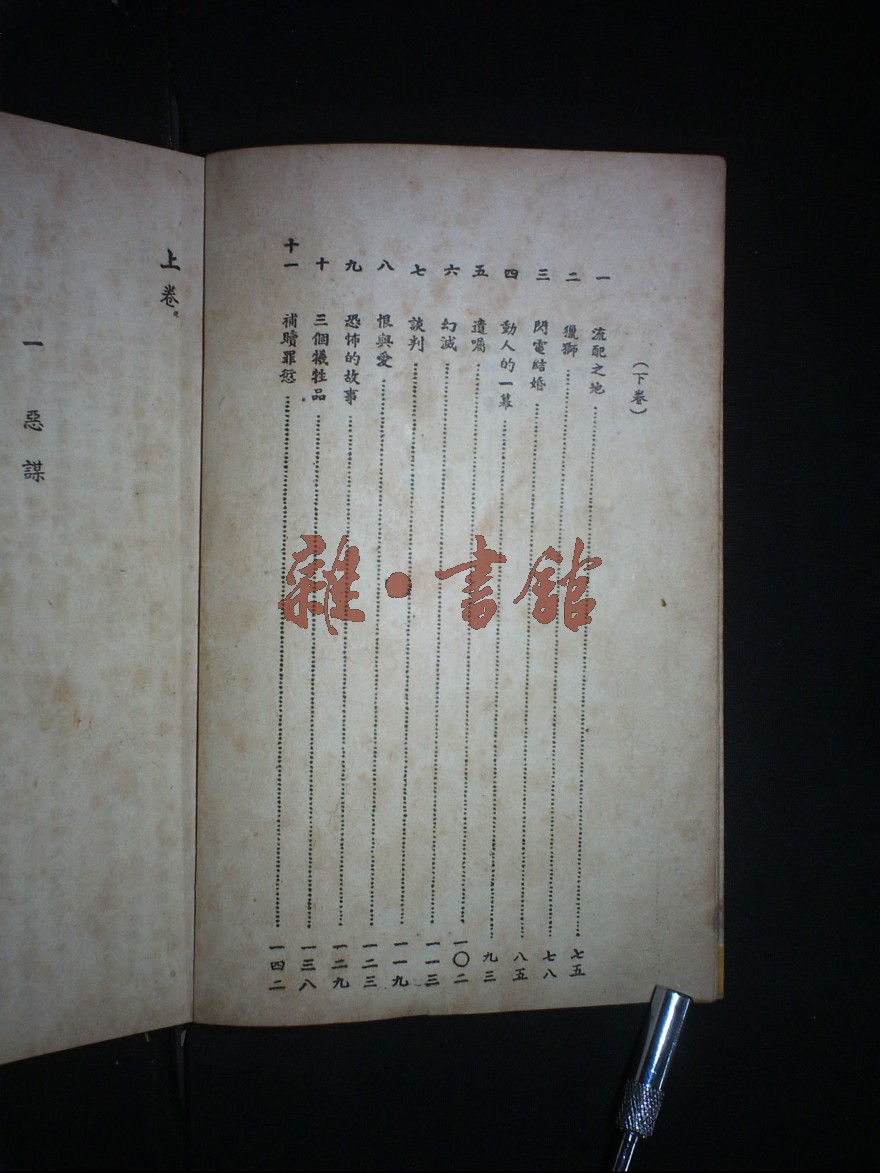 (下卷)
一 流配之地……七五
二 獵獅……七八
三 閃電結婚……八五
四 動人的一幕……九三
五 遺囑……一〇二
六 幻滅……一一三
七 談判……一一九
八 恨與愛……一二三
九 恐怖的故事……一二九
十 三個犧牲品……一三八
十一 補贖罪愆……一四二
上卷
一 惡謀
雜·書館